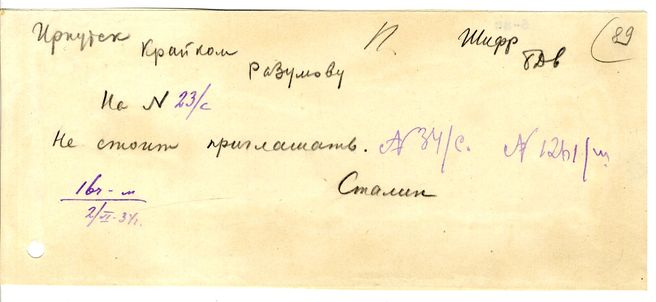 Иркутск Крайком Разумову П. Шифр 89
На N 23/с
Не стоит приглашать. N 34/с. N 1261/ш.
Сталин
16ч - м
2/VI-34г.